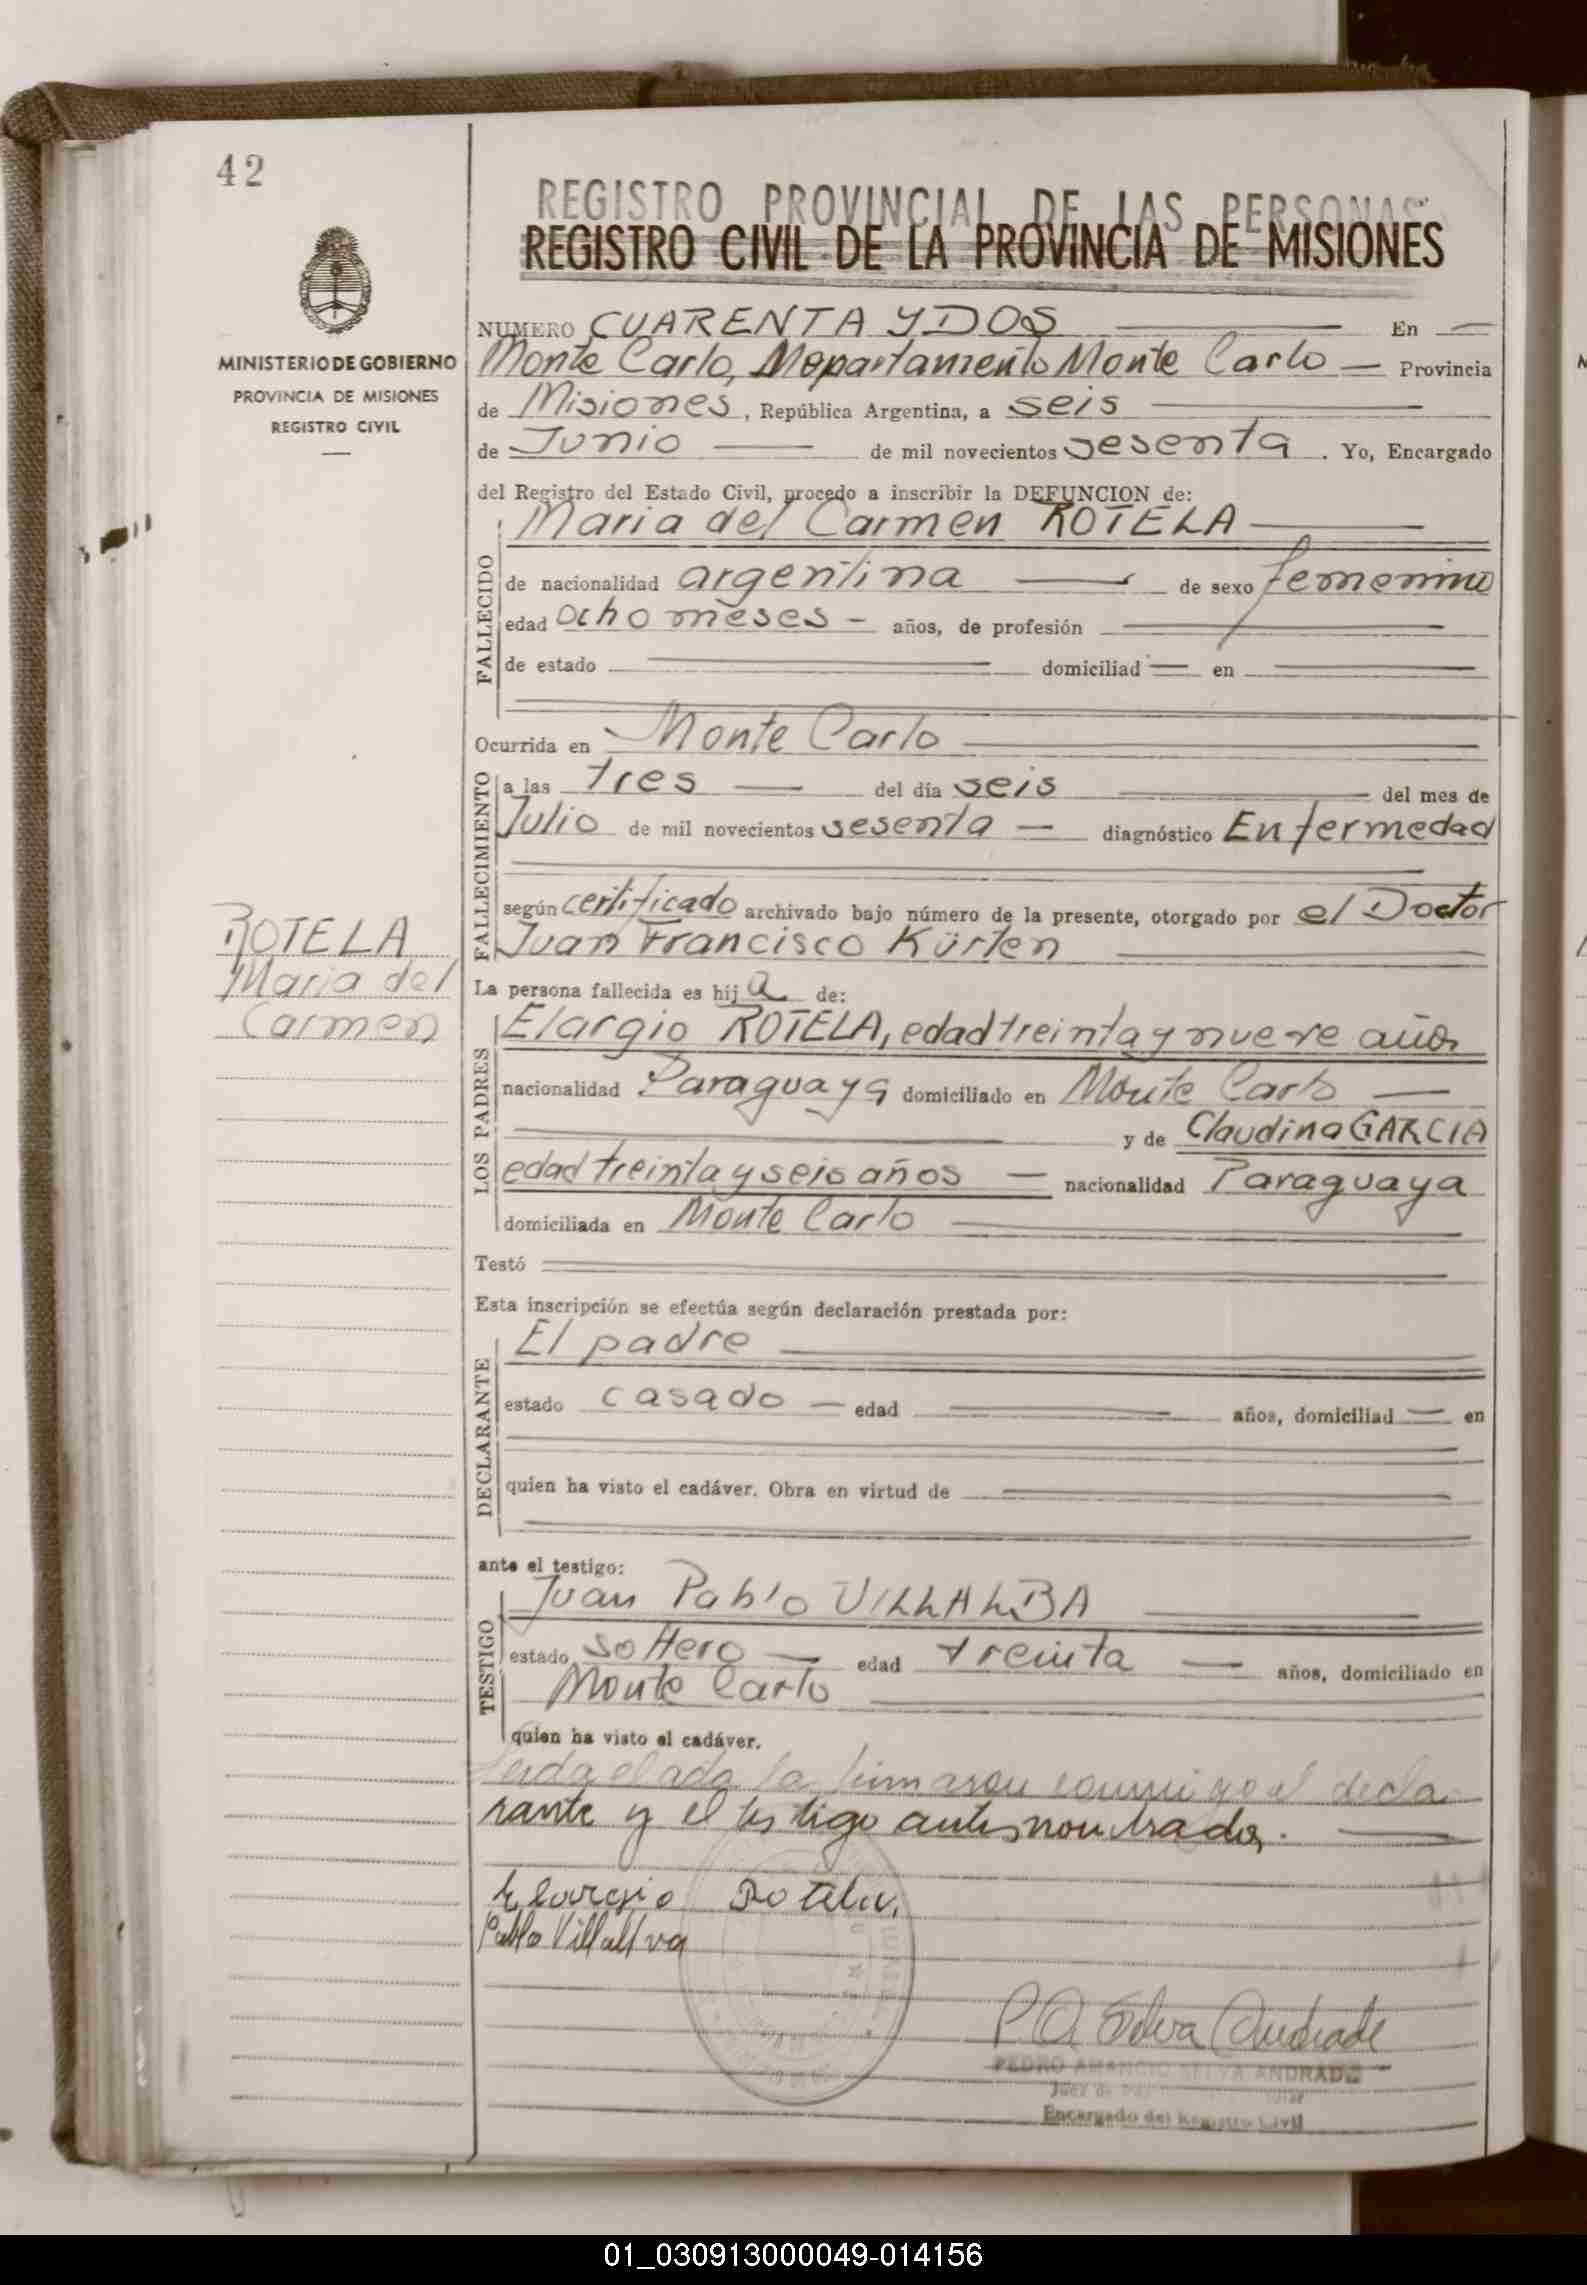 42
REGISTRO PROVINCIAL DE LAS PERSONAS
REGISTRO CIVIL DE LA PROVINCIA DE MISIONES
MINISTERIO DE GOBIERNO
PROVINCIA DE MISIONES
REGISTRO CIVIL
NUMERO CUARENTA Y DOS En
Monte Carlo, Mepartamento Monte Carlo Provincia
de Misiones, República Argentina, a seis
de Junio de mil novecientos sesenta. Yo, Encargado
del Registro del Estado Civil, procedo a inscribir la DEFUNCION de:
Maria del Carmen ROTELA
FALLECIDO
de nacionalidad argentina de sexo femenino
edad ocho meses - años, de profesión
de estado domiciliad en
Ocurrida en Monte Carlo
FALLECIMIENTO
a las tres del día seis del mes de
Julio de mil novecientos sesenta diagnóstico Enfermedad
según certificado archivado bajo número de la presente, otorgado por el Doctor
Juan Francisco Kürten
ROTELA
Maria del
Carmen
La persona fallecida es hija de:
LOS PADRES
Elargio ROTELA, edad treinta y nueve años
nacionalidad Paraguaya domiciliado en Monte Carlo
y de Claudina GARCIA
edad treinta y seis años nacionalidad Paraguaya
domiciliada en Monte Carlo
Testó
Esta inscripción se efectúa según declaración prestada por:
DECLARANTE
El padre
estado casado edad años, domiciliad en
quien ha visto el cadáver. Obra en virtud de
ante el testigo:
TESTIGO
Juan Pablo VILLALBA
estado soltero edad treinta años, domiciliado en
Monte Carlo
quien ha visto el cadáver.
Leida el acta la firmaron conmigo el decla-
rante y el testigo antes nombrados.
Elargio Rotela.
Pablo Villallva
P A Selva Andrade
PEDRO AMANCIO SELVA ANDRADE
Juez de Paz
Encargado del Registro Civil
01_030913000049-014156